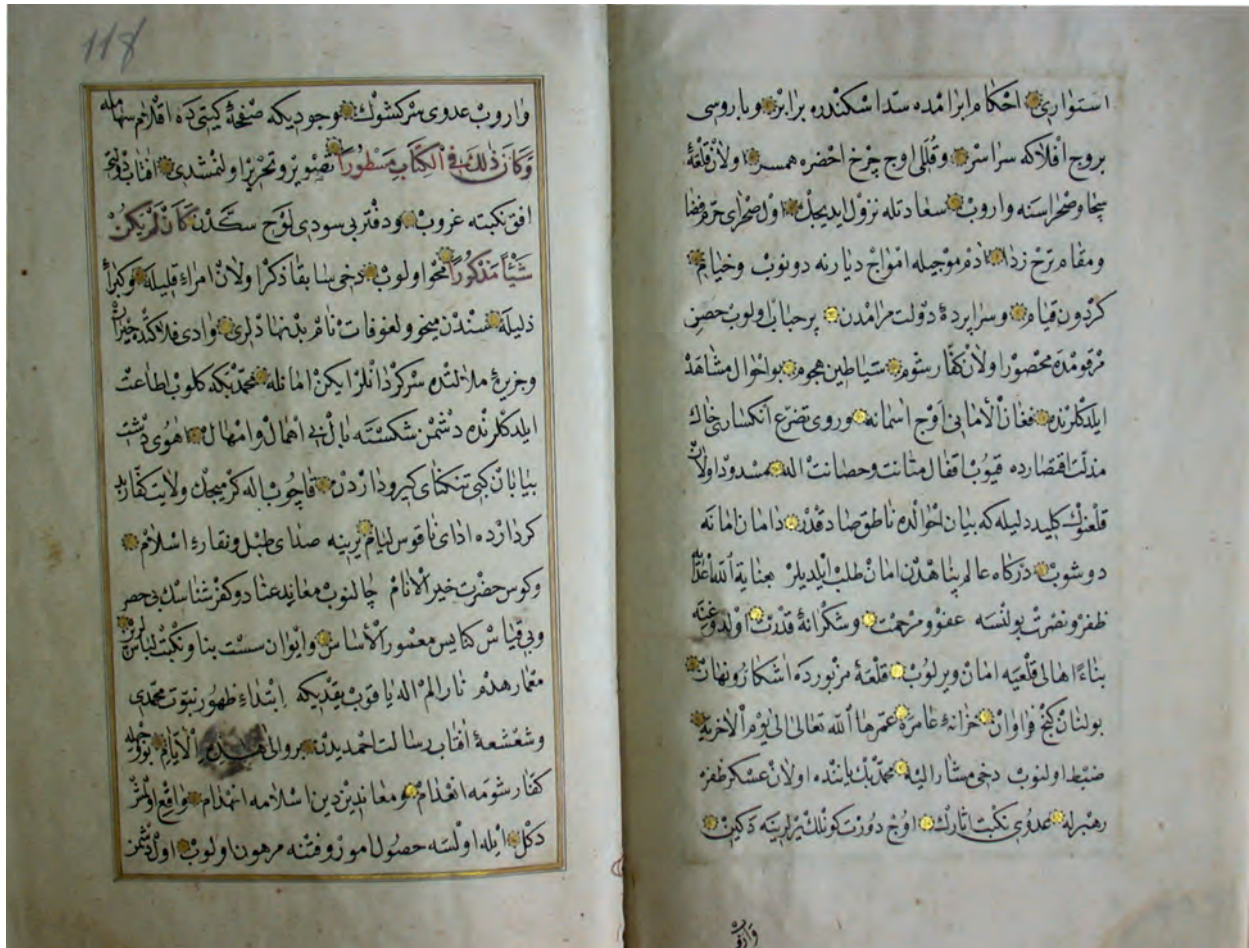 استواری احكام ابرامده سد اسكندره برابر وباروسی
بروج افلاكه سراسر وقللی اوج چرخ اخضره همسر اولان قلعۀ
وصحراسنه واروب سعادتله نزول ایدیجك اول صحرای خرم فضا
ومقام ترح زدا ادم موجیله امواج دیارنه دونوب وخیام
كردون قیام وسراپردۀ دولت مرامدن پر حباب اولوب حصن
مرقومده محصور اولان كفار رشوم شیاطین هجوم بو احوال مشاهده
ایلدكلرنده فغان الأمانی اوج اسمانه وروی تضرع انكساری خاك
مذلت اقتصارده قیوب اقفال متانت وحصانت الله مسدود اولان
قلعنوك كلید دلیله كه بیان احوالده ناطق صادقدر دامان امانه
دوشوب دركاه عالم پناهدن امان طلب ایلدیلر بعناية الله
ظفر ونصرت بولنسه عفو ومرحمت وشكرانۀ قدرت اولدوغنه
بناءً اهالی قلعیه امان ویرلوب قلعۀ مزبورده اشكار ونهان
بولنان كنج فراوان خزانۀ عامره عمرها الله تعالى الى يوم الآخرة
ضبط اولنوب دخی مشار الیه محمد بك یاننده اولان عسكر ظفر
رهبرله عدوی نكبت اثارك اوج دورت كونلك یرلرینه دكین
واروب
118
واروب عدوی سركشوك وجودیكه صفحۀ كیتی ده اقلام سهامله
وَكَانَ ذٰلِكَ فِي الْكِتَابِ مَسْطُوراً تصویر وتحریر اولنمشدی افتاب دولتی
افق نكبته غروب ودفتر بی سودی لوح سكّدن كَاَنْ لَمْ يَكُنْ
شَيْئاً مَذْكُوراً محو اولوب دخی سابقا ذكر اولان امراء قلیله وكبراء
ذلیله سندن میخو ولغوفات نام بدنهادلری وادی فلاكتده حیران
وجزیرۀ ملالتده سركردانلر ایكن اماتله محمد بكه كلوب اطاعت
ایلدكلرنده دشمن شكسته بال بی اهمال وامهال اهوی دشت
بیابان كبی تنكنای كیروداردن قاچوب اله كرمیجك ولایت كفار بد
كردارده ادای ناقوس لیام یرینه صدای طبل ونقارۀ اسلام
وكوس حضرت خیر الانام چالنوب معابد عناد وكفر شناسك بی حصر
وبی قیاس كنایس معمور الأساس وایوان سست بنا ونكبت لباسلرین
معمار هدم نار الم اله یاقوب یقدیكه ابتداء ظهور نبوت محمدی
وشعشعۀ افتاب رسالت احمدیدن برو الى هذه الأيام بو وجهله
كفار شومه انعدام ومعاندین دین اسلامه انهدام واقع اولمش
دكل ایله اولسه حصول امور وقتنه مرهون اولوب اول دشمن